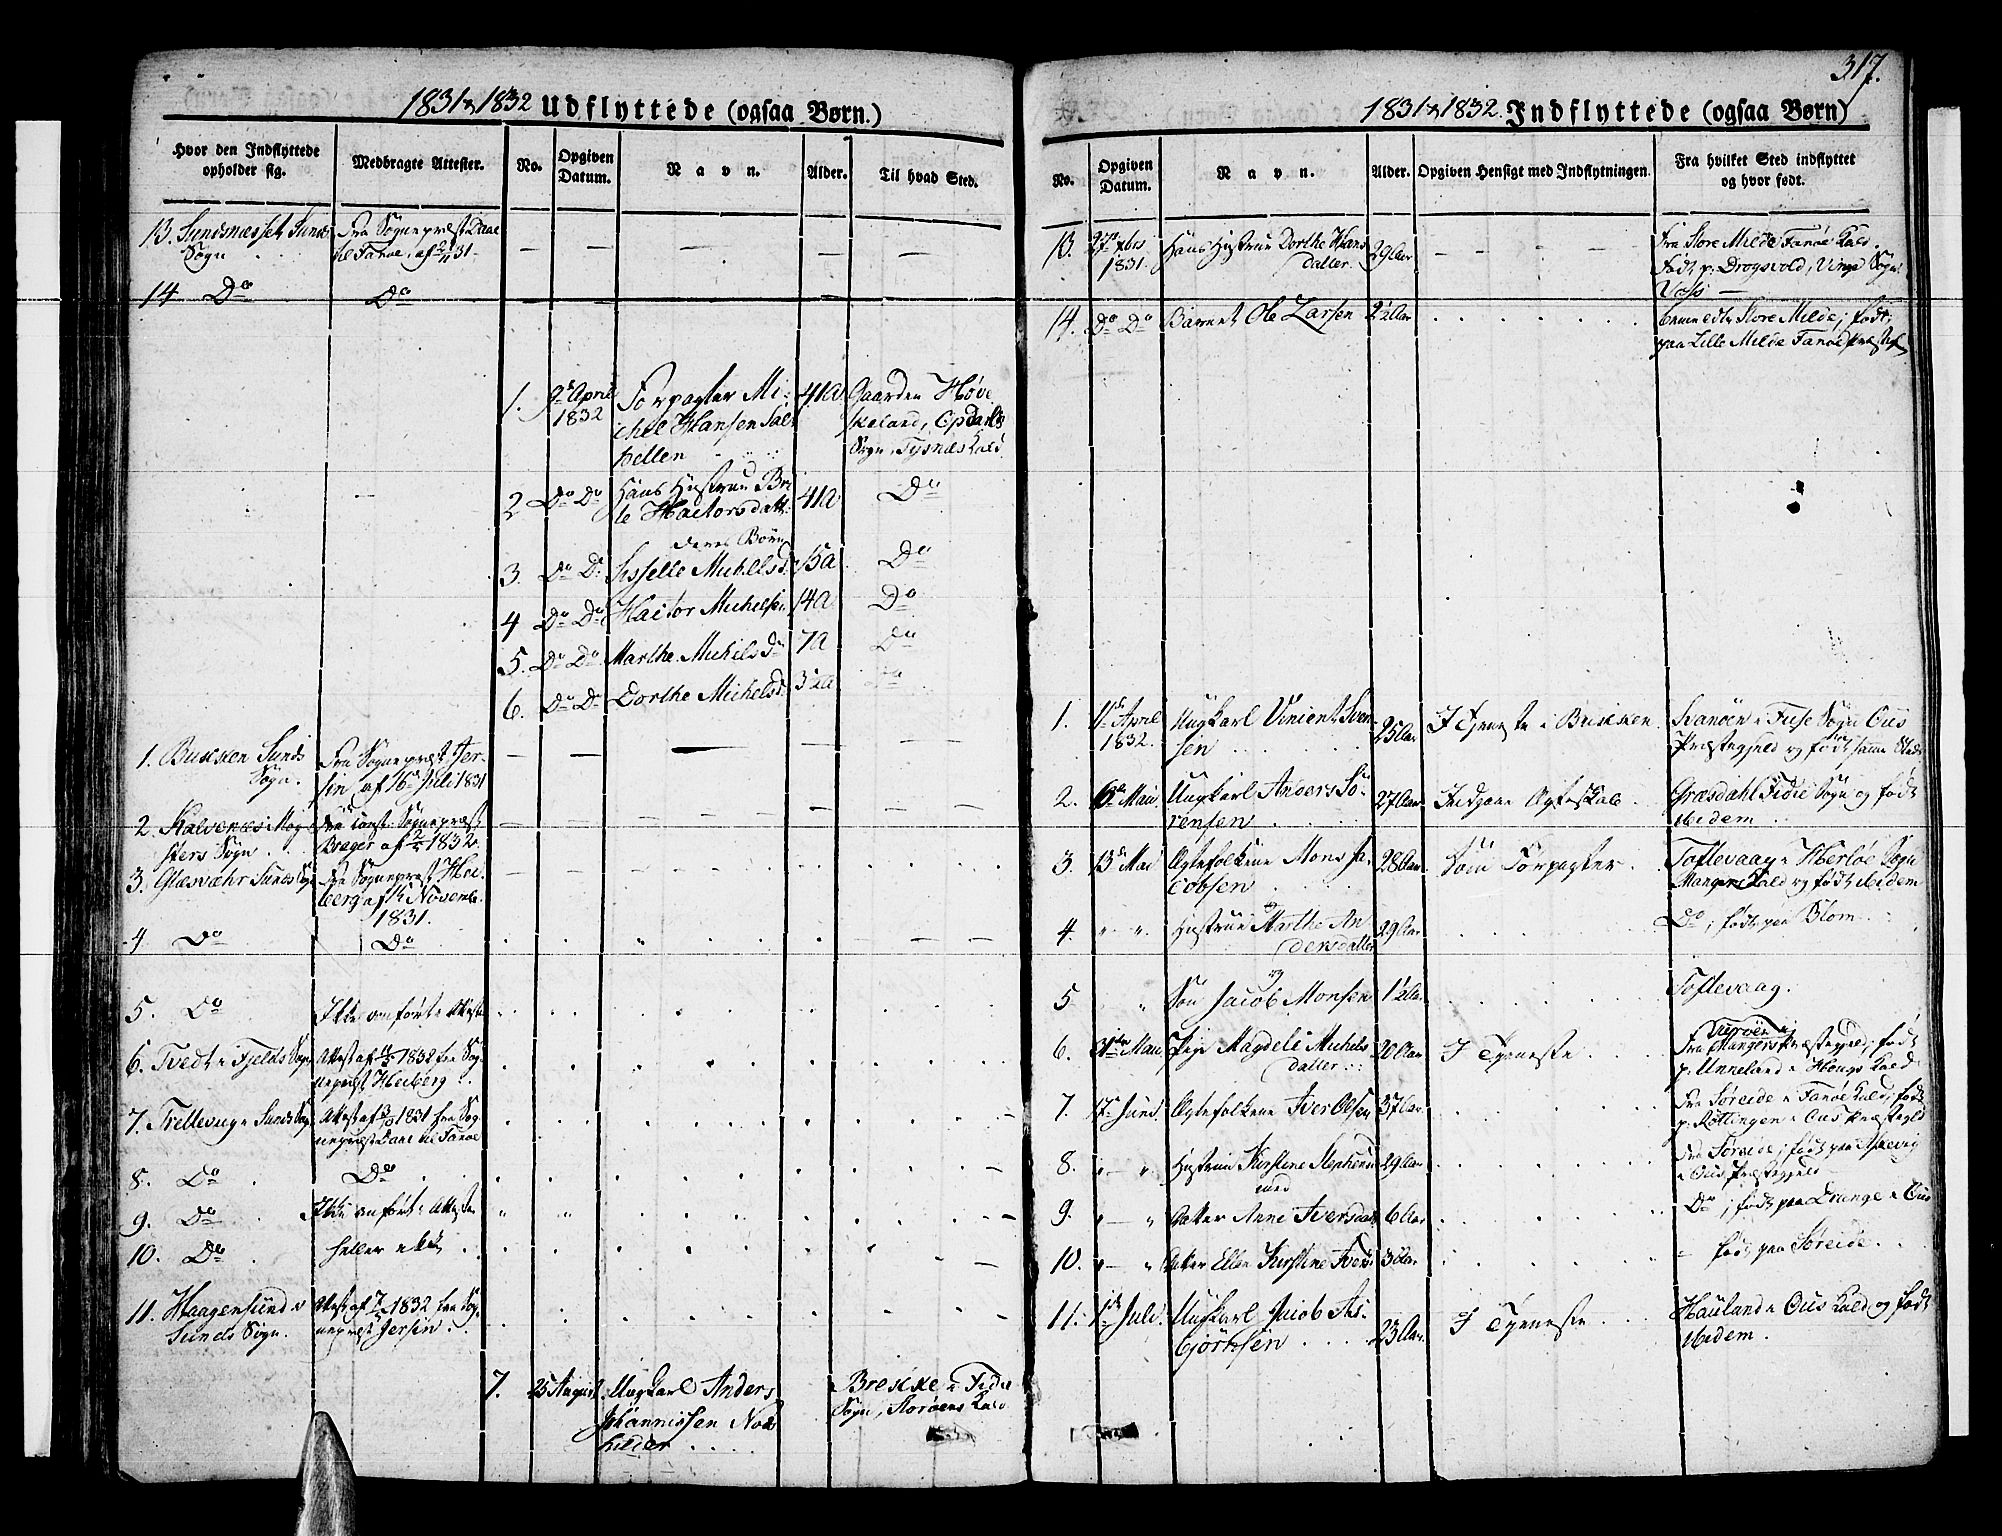 1831 & 1832 Udflyttede (ogsaa Børn.)
Hvor den Indflyttede
opholder sig.
Medbragte Attester.
No.
Opgiven
Datum.
Navn.
Alder.
Til hvad Sted.
13. Sundsnæsset Sunds
Sogn
Fra Sognepræst Daae
til Fanøe, af 2/11 31.
14 Do
Do
1.
9de April
1832
Forpagter Mi-
chel Hansen Sal-
hellen
41 A
Gaarden Høve
skeland, Opdahls
Sogn, Tysnæs Kald.
2
Do Do
Hans Hustrue Bri-
te Hactorsdatt.
41 A
Do
deres Børn
3.
Do Do
Sisselle Michelsd.
15 A
Do
4
Do Do
Hactor Michelsen
14 A
Do
5.
Do Do
Marthe Michelsd.
7 A
Do
6.
Do Do
Dorthe Michelsd.
3½ A
Do
1. Brekken Sunds
Sogn.
Fra Sognepræst Jer-
sin af 16de Juli 1831
2. Kalvenæs i Mog-
sters Sogn
Fra Const. Sognepræst
Brager af 2/5 1832.
3. Glæsvæhr Sunds Sogn
Fra Sognepræst Hei-
berg af 14 Novemb.
1831.
4 Do
Do
5. Do
Ikke anført Atteste
6. Tvedt i Fjelds Sogn
Attest af 11/5 1832 fra Sog-
nepræst Heiberg
7. Trellevug i Sunds Sogn
Attest af 3/10 1831 fra Sog-
nepræst Daae til Fanøe
8. Do
Do
9. Do
Ikke anført Atteste
10. Do
heller ikke
11. Haagensund i
Sunds Sogn.
Attest af 7/ 1832 fra Sog-
nepræst Jersin
7.
25 August
Ungkarl Anders
Johannissen Nord
hilder
Brekke i Fidie
Sogn, Storøens Kald
317.
1831 & 1832. Indflyttede (ogsaa Børn)
No.
Opgiven
Datum.
Navn.
Alder.
Opgiven Hensigt med Indflytningen.
Fra hvilket Sted indflyttet
og hvor født.
13.
27 7brs
1831.
Hans Hustrue Dorthe Hans
datter.
29 Aar
Fra Store Milde Fanøe Kald.
Født p. Drogsvold, Vinje Sogn
Voss
14.
Do Do
Barnet Ole Larsen
2½ Aar
Store Milde; født
paa Lille Milde Fanøe Præstegj.
1.
11te April
1832.
Ungkarl Vincent Sven-
sen
25 Aar
I Tjeneste i Brekken
Svanøen i Fuse Sogn Ous
Præstegjeld og født samme Sted
2.
6te Mai.
Ungkarl Anders Sö-
rensen
27 Aar
Indgaae Ægteskab.
Græsdahl Fidie Sogn og født
ibidem
3.
13de Mai
Ægtefolkene Mons Ja-
cobsen
28 Aar
Som Forpagter
Toflevaag i Herløe Sogn
Mangers Kald og født ibidem
4.
og
Hustrue Marthe An
dersdatter
29 Aar
Do; født paa Blom
5
og
Søn Jacob Monsen
1½ Aar
Toflevaag.
6.
31te Mai
Pige Magdeli Michels
datter
20 Aar
I Tjeneste
Fra Mangers Præstegjeld; født
p. Unneland i Hougs Kald
7.
17 Juni
Ægtefolkene Iver Olsen
37 Aar
Fra Søreide i Fanøe Kald; født
p. Röttingen i Ous Præstegjeld
8.
Hustrue Kirstine Stephensd
med
29 Aar
Fra Søreide; født paa
i Ous Præstegjeld
9.
Datter Anne Iversdatt
6 Aar
Do; født paa Drange i Ous
10.
Datter Ellen Kirstine Ivers
3 Aar
født paa Søreide.
11.
1ste Juli.
Ungkarl Jacob As-
björnsen
23 Aar
I Tjeneste
Hauland i Ous Kald og født
ibidem.